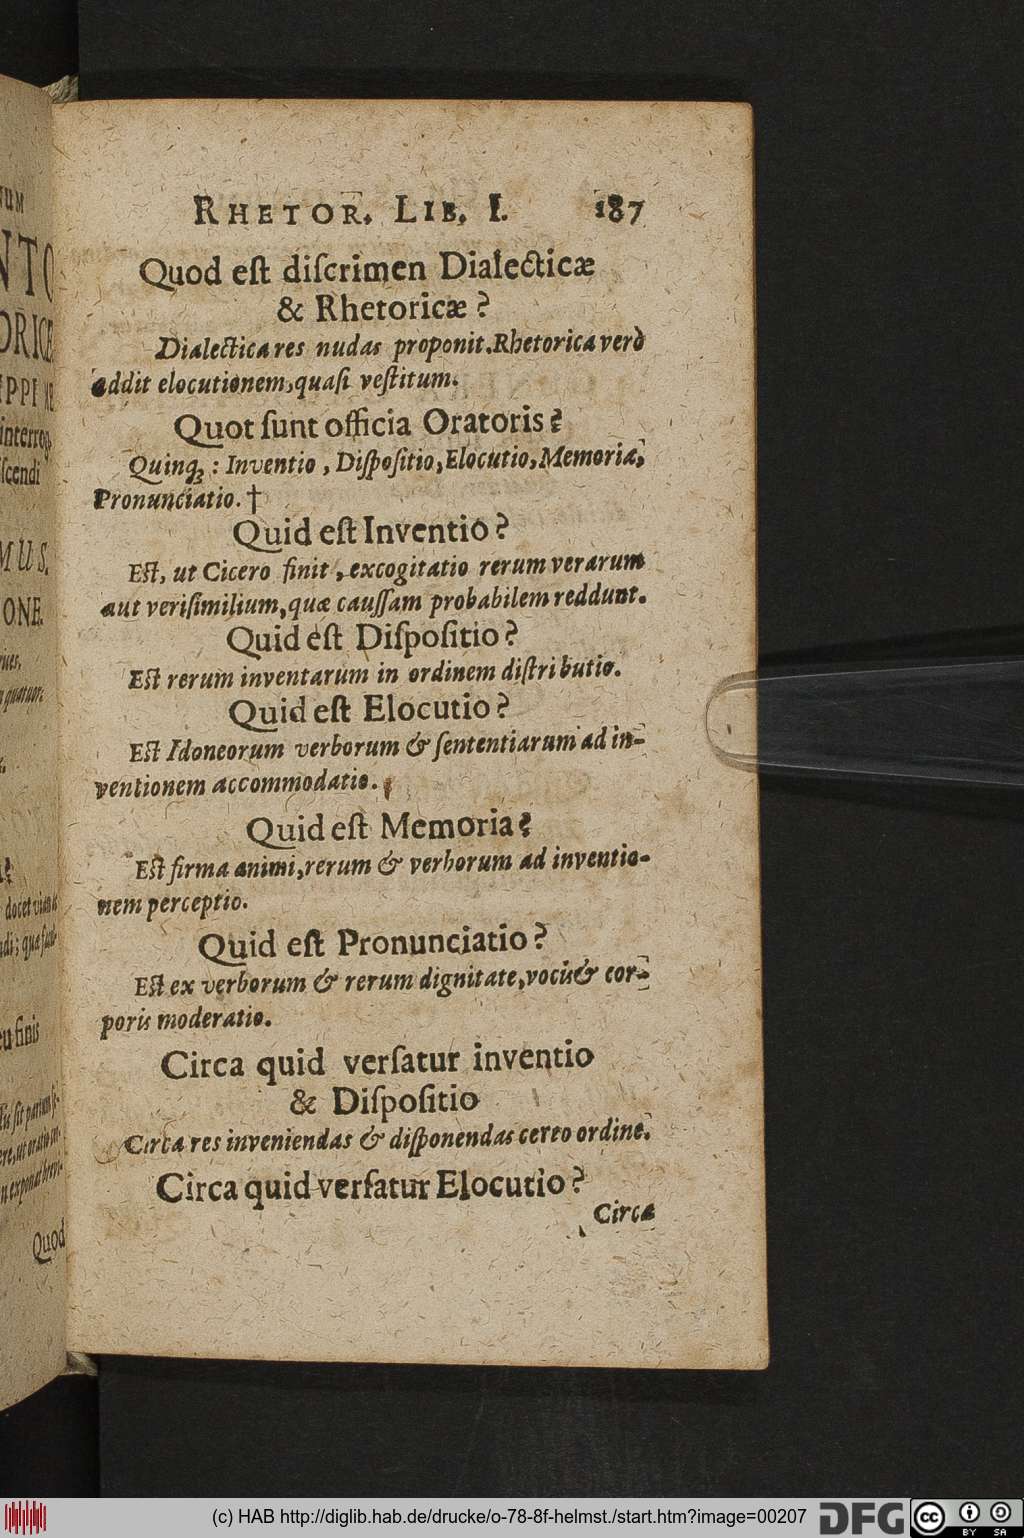 RHETOR. LIB. I. 187
Quod eſt diſcrimen Dialecticæ
& Rhetoricæ?
Dialectica res nudas proponit. Rhetorica verò
addit elocutionem, quaſi veſtitum.
Quot ſunt officia Oratoris?
Quinq; : Inventio, Diſpoſitio, Elocutio, Memoria,
Pronunciatio. †
Quid eſt Inventio?
Eſt, ut Cicero finit, excogitatio rerum verarum
aut veriſimilium, quæ cauſſam probabilem reddunt.
Quid eſt Diſpoſitio?
Eſt rerum inventarum in ordinem diſtributio.
Quid eſt Elocutio?
Eſt Idoneorum verborum & ſententiarum ad in-
ventionem accommodatio.
Quid eſt Memoria?
Eſt firma animi, rerum & verborum ad inventio-
nem perceptio.
Quid eſt Pronunciatio?
Eſt ex verborum & rerum dignitate, vocũ & cor-
poris moderatio.
Circa quid verſatur inventio
& Diſpoſitio
Circa res inveniendas & diſponendas certo ordine.
Circa quid verſatur Elocutio?
Circa
Quod
(c) HAB http://diglib.hab.de/drucke/o-78-8f-helmst./start.htm?image=00207
DFG
cc
BY SA